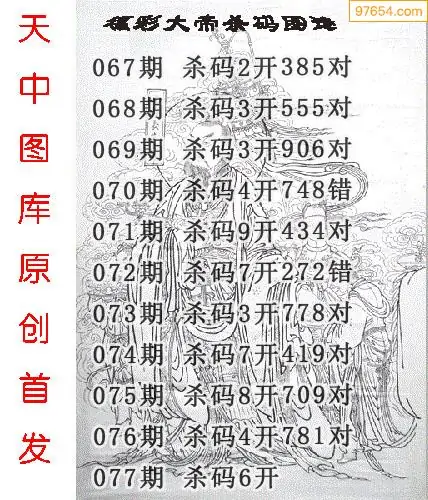 97654.com
福彩大帝杀码图迷
067期 杀码2开385对
068期 杀码3开555对
069期 杀码3开906对
070期 杀码4开748错
071期 杀码9开434对
072期 杀码7开272错
073期 杀码3开778对
074期 杀码7开419对
075期 杀码8开709对
076期 杀码4开781对
077期 杀码6开
天中图库原创首发